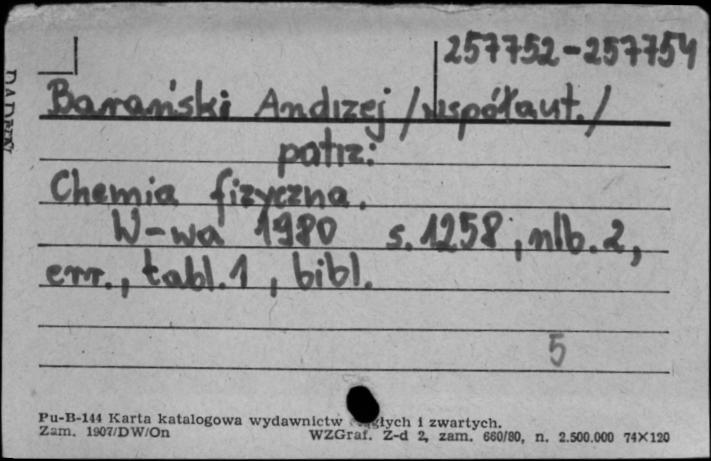 257752-257754
Barański Andrzej /współaut./
patrz:
Chemia fizyczna.
W-wa 1980 s. 1258, nlb. 2,
err., tabl. 1, bibl.
5
Pu-B-144 Karta katalogowa wydawnictw głych i zwartych.
Zam. 1907/DW/On WZGraf. Z-d 2, zam. 660/80, n. 2.500.000 74×120